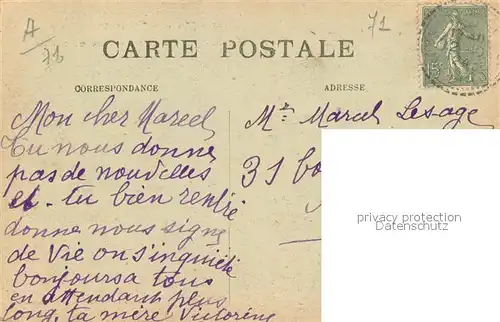 A/71
71
CARTE POSTALE
CORRESPONDANCE
ADRESSE
Mon cher Marcel
Tu nous donne
pas de nouvelles
et tu bien rentré
donne nous signe
de Vie on s'inquiète
bonjours a tous
en attendant plus
long, la mère Victorine
Mr Marcel Lesage
31 bo
privacy protection
Datenschutz
15